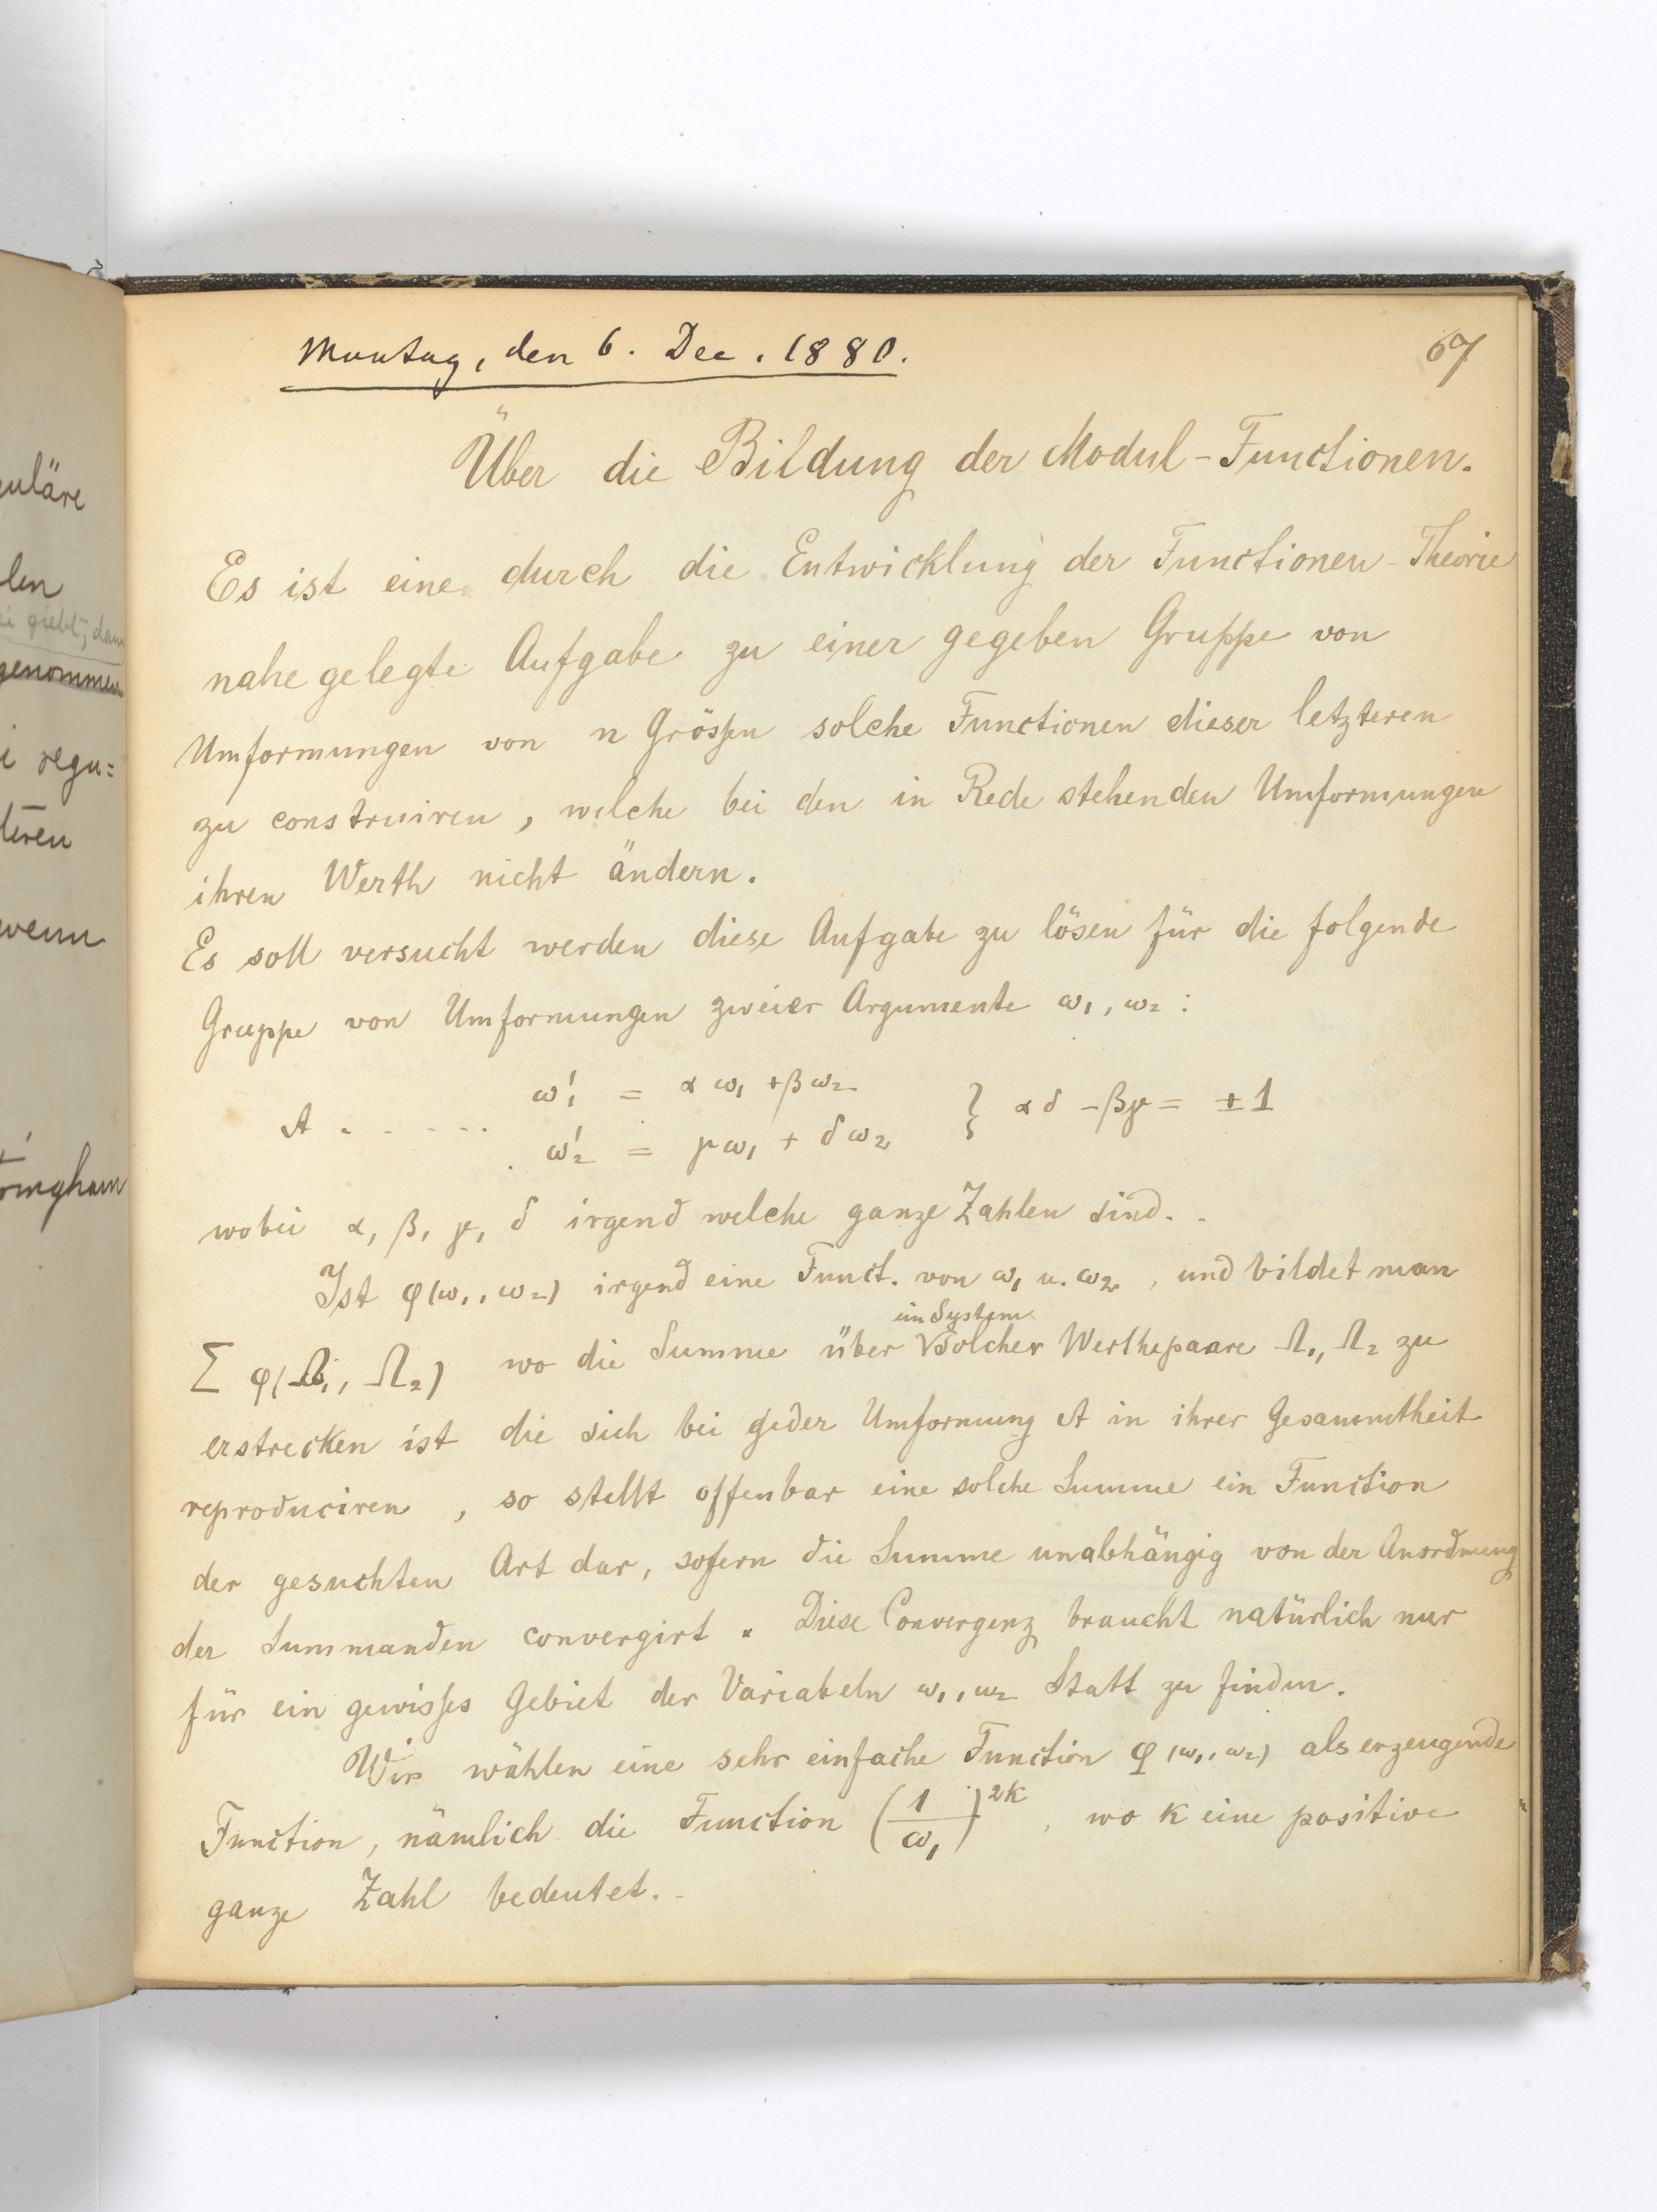 Montag, den 6. Dec. 1880.
67
Über die Bildung der Modul-Functionen.
Es ist eine durch die Entwicklung der Functionen-Theorie
nahe gelegte Aufgabe zu einer gegeben Gruppe von
Umformungen von n Größen solche Functionen dieser letzteren
zu construiren, welche bei den in Rede stehenden Umformungen
ihren Werth nicht ändern.
Es soll versucht werden diese Aufgabe zu lösen für die folgende
Gruppe von Umformungen zweier Argumente ω₁, ω₂ :
A . . . . . ω₁' = αω₁ + βω₂
ω₂' = γω₁ + δω₂ } αδ - βγ = ±1
wobei α, β, γ, δ irgend welche ganze Zahlen sind.
Ist φ(ω₁, ω₂) irgend eine Funct. von ω₁ u. ω₂, und bildet man
ein System
Σ φ(Ω₁, Ω₂) wo die Summe über solcher Werthepaare Ω₁, Ω₂ zu
erstrecken ist die sich bei jeder Umformung A in ihrer Gesammtheit
reproduciren, so stellt offenbar eine solche Summe ein Function
der gesuchten Art dar, sofern die Summe unabhängig von der Anordnung
der Summanden convergirt. Diese Convergenz braucht natürlich nur
für ein gewisses Gebiet der Variabeln ω₁, ω₂ Statt zu finden.
Wir wählen eine sehr einfache Function φ(ω₁, ω₂) als erzeugende
Function, nämlich die Function (1/ω₁)^2k, wo k eine positive
ganze Zahl bedeutet.
uläre
len
giebt, dann
genommen
i regu=
teren
wenn
ringham